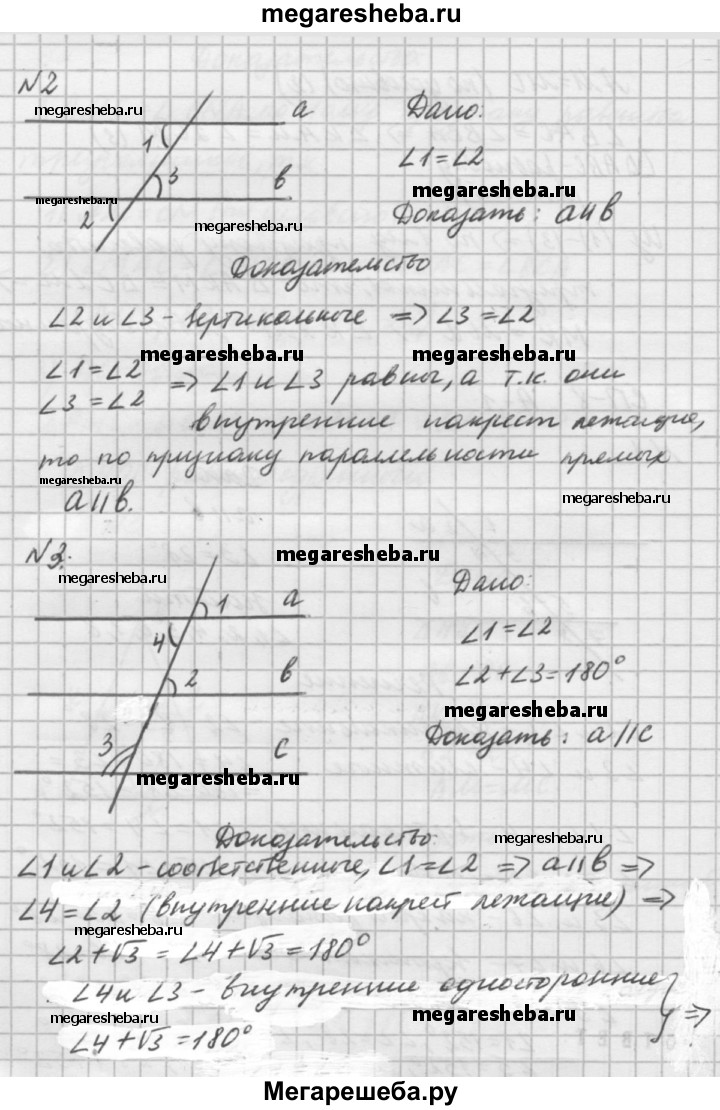 megaresheba.ru
N2
megaresheba.ru
a
1
3
b
megaresheba.ru
2
megaresheba.ru
Дано:
∠1=∠2
megaresheba.ru
Доказать: a||b
Доказательство
∠2 и ∠3 - вертикальные => ∠3=∠2
megaresheba.ru megaresheba.ru
∠1=∠2
∠3=∠2 => ∠1 и ∠3 равны, а т.к. они
внутренние накрест лежащие,
то по признаку параллельности прямых
megaresheba.ru megaresheba.ru
a||b.
N3.
megaresheba.ru
megaresheba.ru
1 a
4
2 b
3
c
megaresheba.ru
Дано:
∠1=∠2
∠2+∠3=180°
megaresheba.ru
Доказать: a||c
Доказательство:
megaresheba.ru
∠1 и ∠2 - соответственные, ∠1=∠2 => a||b =>
∠4=∠2 (внутренние накрест лежащие) =>
megaresheba.ru
∠2+√3 = ∠4+√3=180°
∠4 и ∠3 - внутренние односторонние } =>
megaresheba.ru megaresheba.ru
∠4+√3=180°
Мегарешеба.ру